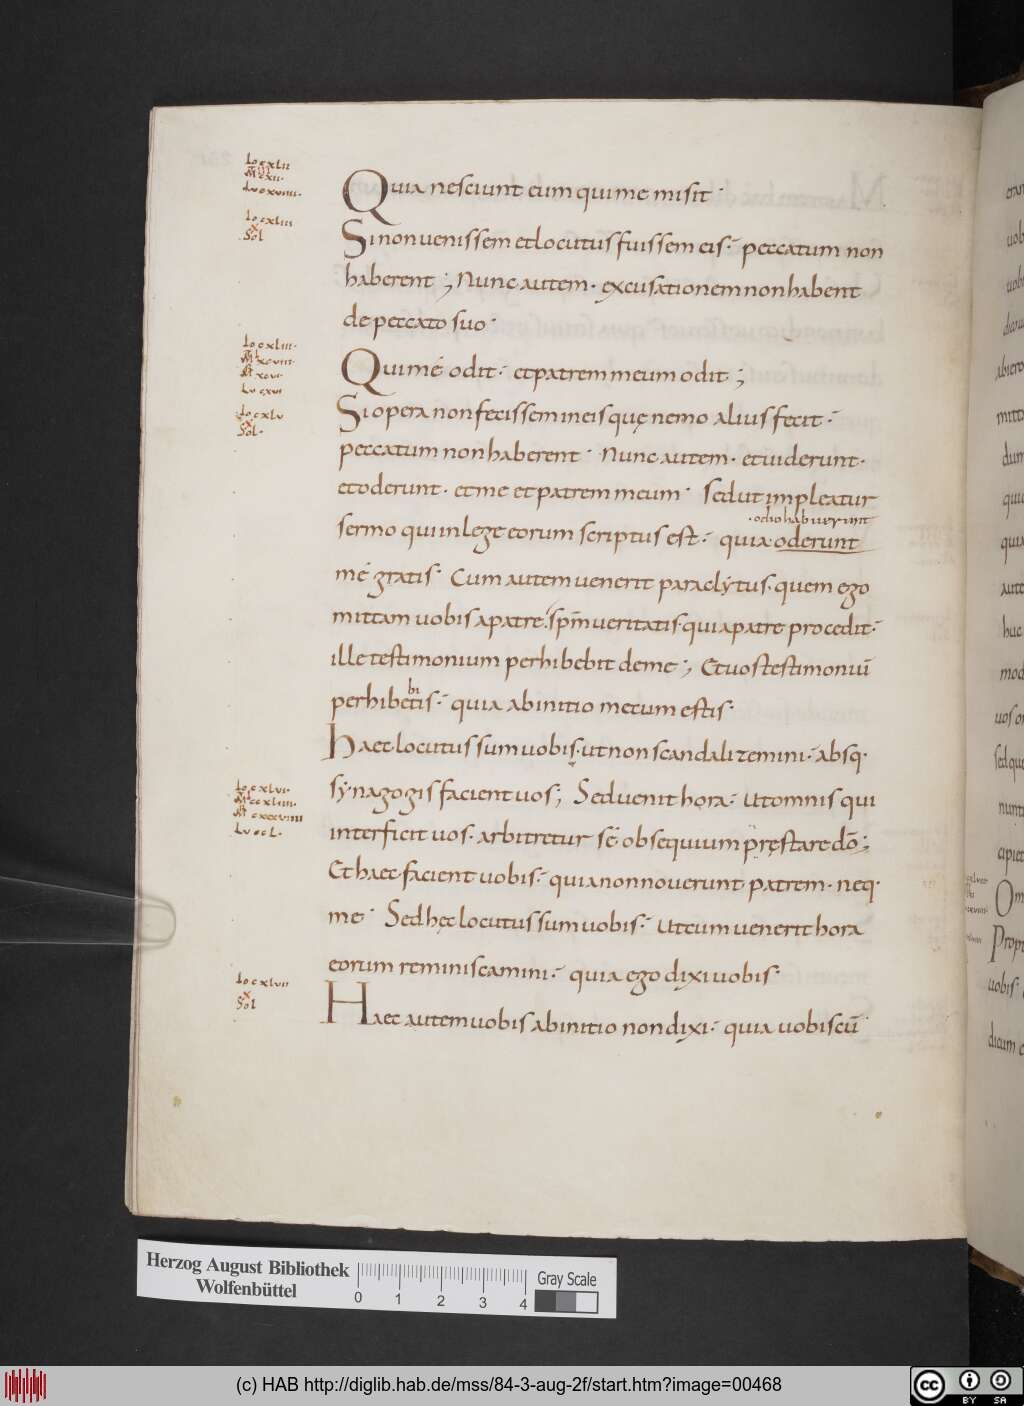 Io cxlii
Mt xcii
Lu cxviiii
Quia nesciunt eum qui me misit·
Io cxliii
x
Sol
Si non uenissem et locutus fuissem eis·́ peccatum non
haberent ; Nunc autem· excusationem non habent
de peccato suo·
Io cxliiii·
Mt xcviiii·
Lu cxvi
Qui mé odit·́ et patrem meum odit ;
Io cxlv
x
Sol·
Si opera non fecissem in eis quę nemo alius fecit·́
peccatum non haberent· Nunc autem· et uiderunt·
et oderunt· et me et patrem meum· sed ut impleatur
·odio habuerunt
sermo qui in lege eorum scriptus est·́ quia oderunt
mé gratis· Cum autem uenerit paraclẏtus· quem ego
mittam uobis a patre· spm̄ ueritatis· qui a patre procedit·́
ille testimonium perhibebit de me ; Et uos testimoniū
bi
perhibetis·́ quia ab initio mecum estis·
Haec locutus sum uobis· ut non scandalizemini·́ absq·
Io cxlvi·
Lu ccl·
sẏnagogis facient uos ; Sed uenit hora·́ Ut omnis qui
interficit uos· arbitretur sé obsequium pręstare dō ;
Et haec facient uobis·́ quia non nouerunt patrem· neq·
me· Sed hęc locutus sum uobis·́ Ut cum uenerit hora
eorum reminiscamini·́ quia ego dixi uobis·
Io cxlvii
x
Sol
Haec autem uobis ab initio non dixi·́ quia uobiscū
Herzog August Bibliothek
Wolfenbüttel
0 1 2 3 4
Gray Scale
(c) HAB http://diglib.hab.de/mss/84-3-aug-2f/start.htm?image=00468
cc BY SA